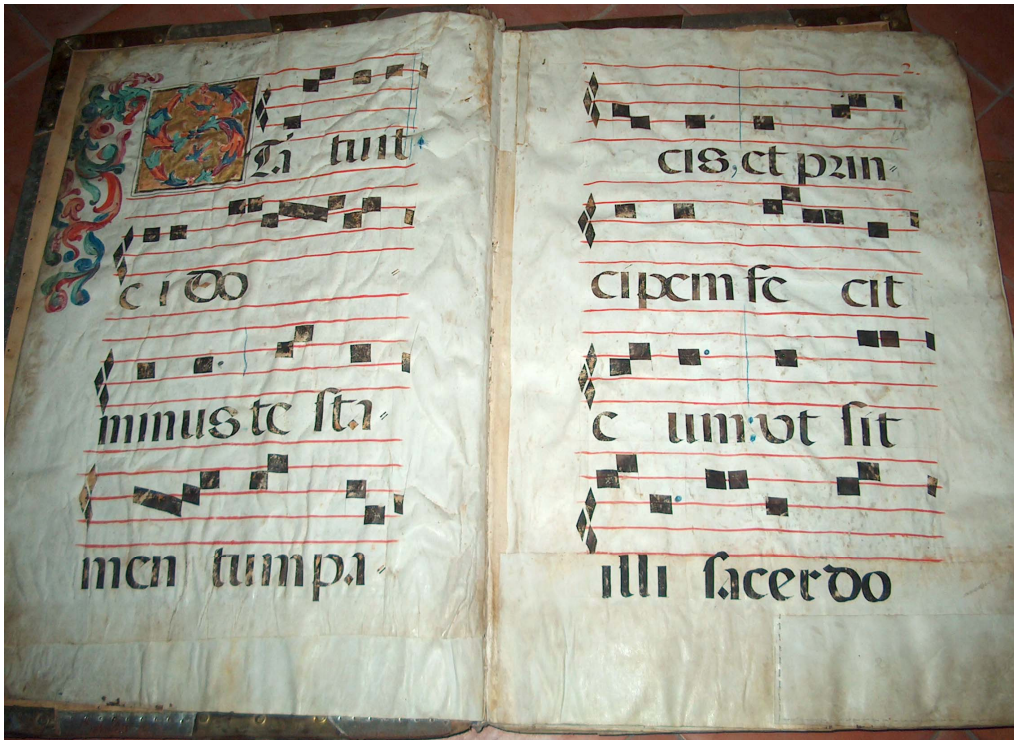 STa tuit
ci do
minus te sta
men tum pa
2.
cis, et prin
cipem fe cit
e um: vt sit
illi sacerdo